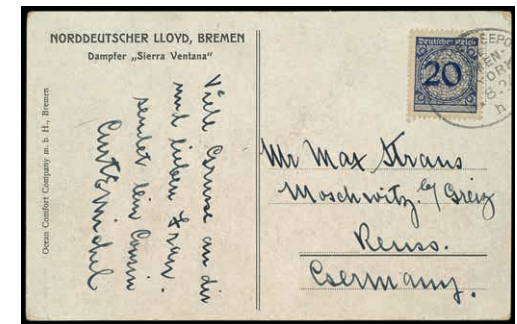 NORDDEUTSCHER LLOYD, BREMEN
Dampfer „Sierra Ventana"
Ocean Comfort Company m. b. H., Bremen
Viele Grüsse an dir
und lieben Frau
sendet dein Cousin
Deutsches Reich
20
Mr Max Straus
Moschwitz b/ Greiz
Reuss.
Germany.